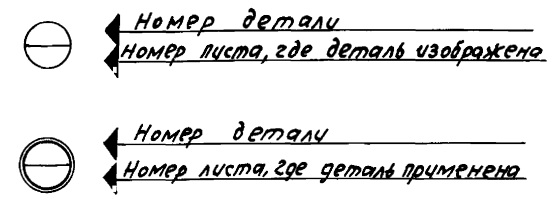 Номер детали
Номер листа, где деталь изображена
Номер детали
Номер листа, где деталь применена